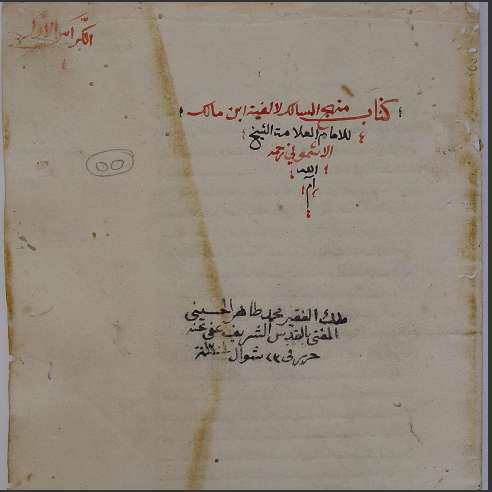 الكراس الأول
كتاب منهج السالك لالفية ابن مالك
للامام العلامة الشيخ
الاشموني رحمه
الله
ام
ملك الفقير محمد طاهر الحسيني
المفتي بالقدس الشريف عفي عنه
حرر في ٢٣ شوال